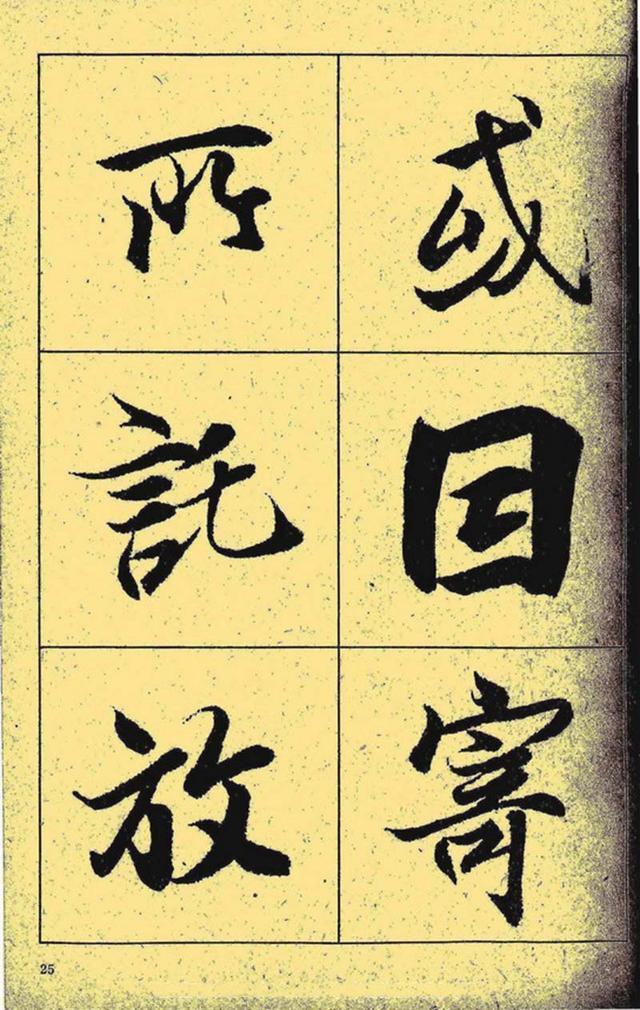 或因寄
所託放
25